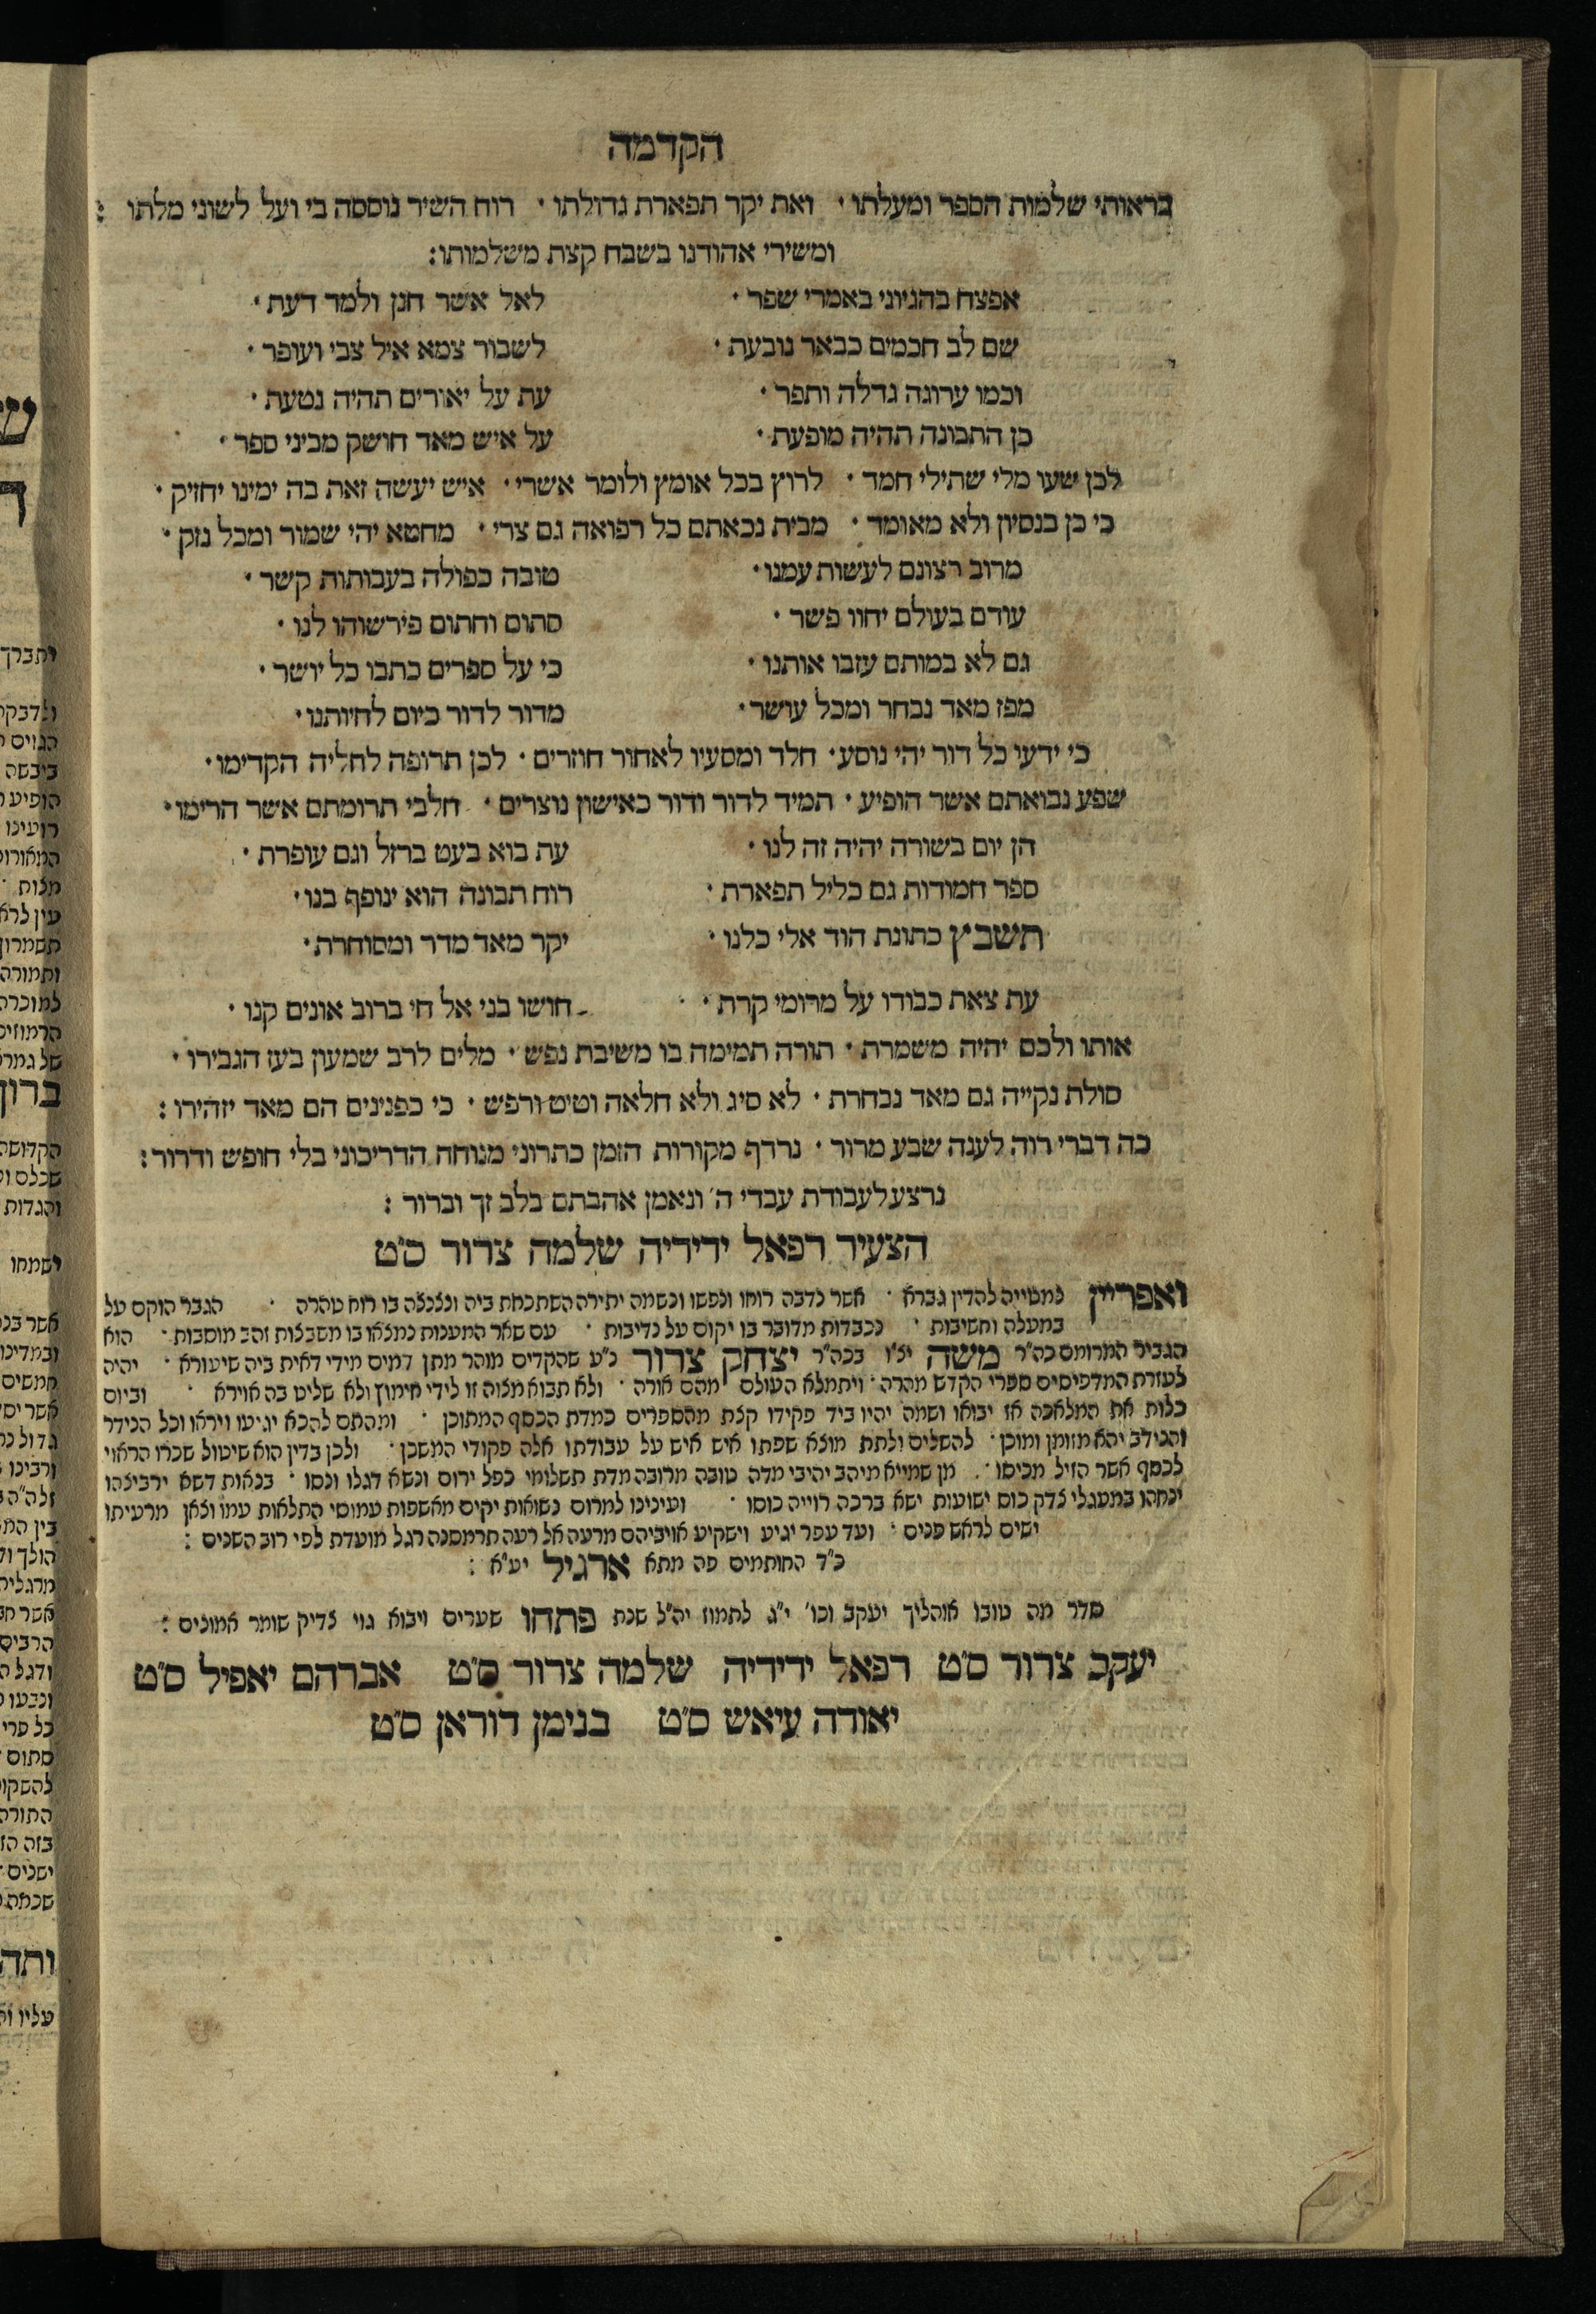 הקדמה
בראותי שלמות הספר ומעלתו · ואת יקר תפארת גדולתו · רוח השיר נוססה בי ועל לשוני מלתו :
ומשירי אהודנו בשבח קצת משלמותו :
אפצח בהגיוני באמרי שפר · לאל אשר חנן ולמד דעת ·
שם לב חכמים כבאר נובעת · לשבור צמא איל צבי ועופר ·
וכמו ערוגה גדלה ותפר · עת על יאורים תהיה נטעת ·
כן התבונה תהיה מופעת · על איש מאד חושק מביני ספר ·
לכן שעו מלי שתילי חמד · לרוץ בכל אומץ ולומר אשרי · איש יעשה זאת בה ימינו יחזיק ·
כי כן בנסיון ולא מאומד · מבית נכאתם כל רפואה גם צרי · מחטא יהי שמור ומכל נזק ·
מרוב רצונם לעשות עמנו · טובה כפולה בעבותות קשר ·
עודם בעולם יחוו פשר · סתום וחתום פירשוהו לנו ·
גם לא במותם עזבו אותנו · כי על ספרים כתבו כל יושר ·
מפז מאד נבחר ומכל עושר · מדור לדור כיום לחיותנו ·
כי ידעו כל דור יהי נוסע · חלד ומסעיו לאחור חוזרים · לכן תרופה לחליה הקדימו ·
שפע נבואתם אשר הופיע · תמיד לדור ודור כאישון נוצרים · חלבי תרומתם אשר הרימו ·
הן יום בשורה יהיה זה לנו · עת בוא בעט ברזל וגם עופרת ·
ספר חמודות גם כליל תפארת · רוח תבונה הוא ינופף בנו ·
תשבץ כתונת הוד אלי כלנו · יקר מאד מדר ומסוחרת ·
עת צאת כבודו על מרומי קרת · חושו בני אל חי ברוב אונים קנו ·
אותו ולכם יהיה משמרת · תורה תמימה בו משיבת נפש · מלים לרב שמעון בעז הגבירו ·
סולת נקייה גם מאד נבחרת · לא סיג ולא חלאה וטיט ורפש · כי כפנינים הם מאד יזהירו :
כה דברי רוה לענה שבע מרור · נרדף מקורות הזמן כתרוני מנוחה הדריכוני בלי חופש ודרור :
נרצע לעבודת עבדי ה' ונאמן אהבתם בלב זך וברור :
הצעיר רפאל ידידיה שלמה צרור ס"ט
ואפריין נמטייה להדין גברא · אשר נדבה רוחו ונפשו ונשמה יתירה השתכחת ביה ונצנצה בו רוח טהרה · הגבר הוקם על
במעלה וחשיבות · נכבדות מדובר בו יקום על נדיבות · עם שאר המענות נמצאו בו משבצות זהב מוסבות · הוא
הגביר המרומם כה"ר משה יצ"ו בכה"ר יצחק צרור נ"ע שהקדים מוהר מתן דמים מידי דאית ביה שיעורא · יהיה
לעזרת המדפיסים ספרי הקדש מהרה · ויתמלא העולם מהם אורה · ולא תבוא מצוה זו לידי חימוץ ולא שליט בה אוירא · וביום
כלות את המלאכה אז יבואו ושמה יהיו ביד פקידו קצת מהספרים כמדת הכסף המתוכן · ומהתם להכא יגיעו ויראו וכל הנידר
והנידב יהא מזומן ומוכן · להשלים ולתת מוצא שפתו איש איש על עבודתו אלה פקודי המשכן · ולכן בדין הוא שיטול שכרו הראוי
לכסף אשר הזיל מכיסו · מן שמייא מיהב יהיבי מדה טובה מרובה מדת תשלומי כפל ירום ונשא דגלו ונסו · בנאות דשא ירביצהו
ינחהו במעגלי צדק כוס ישועות ישא ברכה רוייה כוסו · ועינינו למרום נשואות יקים מאשפות עמוסי התלאות עמו וצאן מרעיתו
ישים לראש פנים · ועד עפר יגיע וישקיע אויביהם מרעה אל רעה תרמסנה רגל מועדת לפי רוב השנים :
כ"ד החותמים פה מתא ארגיל יע"א :
סדר מה טובו אוהליך יעקב וכו' י"ג לתמוז יה"ל שנת פתחו שערים ויבוא גוי צדיק שומר אמונים :
יעקב צרור ס"ט רפאל ידידיה שלמה צרור ס"ט אברהם יאפיל ס"ט
יאודה עיאש ס"ט בנימן דוראן ס"ט